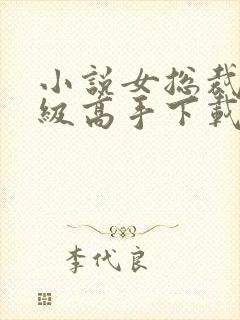 小説女总裁
級高手下載
李代良